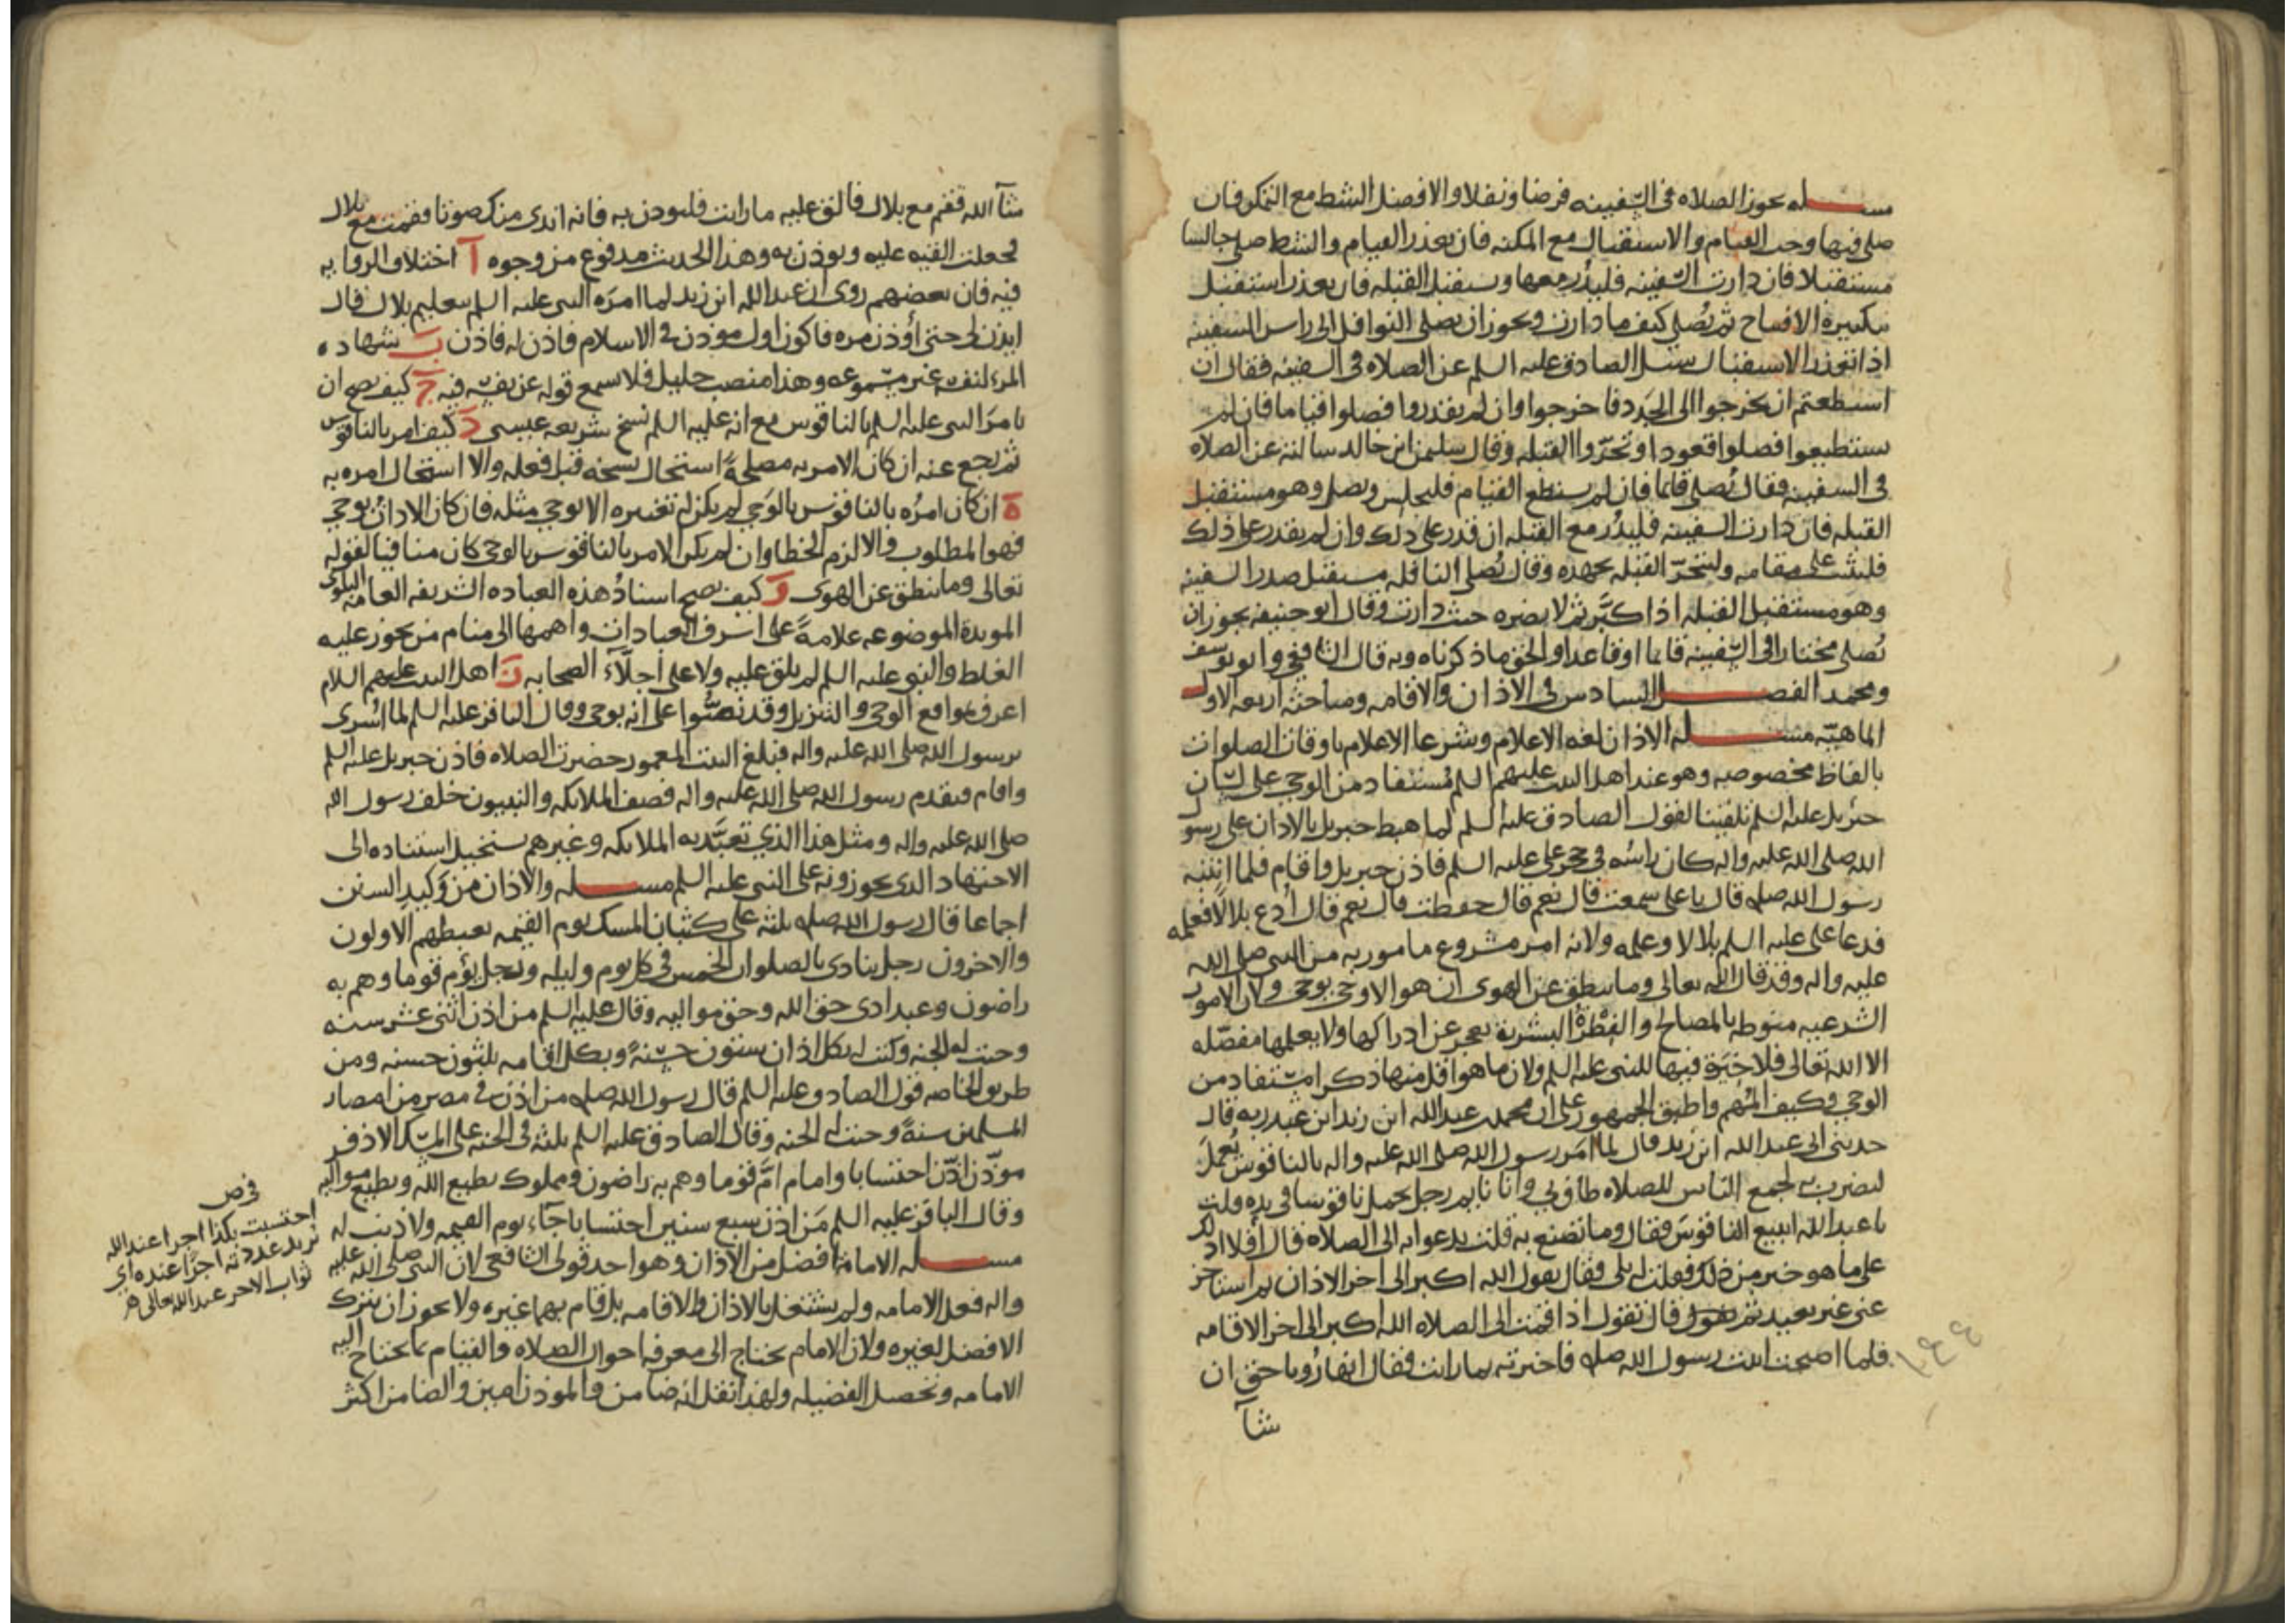 مسـله يجوز الصلاه فى السفينه فرضا ونفلا والافضل الشط مع التمكن فان
صلى فيها وجب القيام والاستقبال مع المكنه فان تعذر القيام والشط صلى جالسا
مستقبلا فان دارت السفينه فليدر معها وستقبل القبله فان تعذر استقبل
بتكبيره الافتتاح ثم يُصلى كيف ما دارت ويجوز ان يصلى النوافل الى راس السفينه
اذا تعذر الاستقبال سئل الصادق عليه السلم عن الصلاه فى السفينه فقال ان
استطعتم ان تخرجوا الى الجَدَد فاخرجوا وان لم يقدروا فصلوا قياما فان لم
ستطيعوا فصلوا قعودا وتحرّوا القبله وقال سليمن ابن خالد سالته عن الصلاه
فى السفينه فقال يُصلى قائما فان لم يستطع القيام فليجلس ويصلى وهو مستقبل
القبله فان دارت السفينه فليدُر مع القبله ان قدر على ذلك وان لم يقدر على ذلك
فليثبت على مقامه وليتحرّ القبله بجهده وقال يُصلى النافله مستقبل صدر السفينه
وهو مستقبل القبله اذا كبَّر ثم لا يضره حيث دارت وقال ابو حنيفه يجوز ان
يُصلى مختارا فى السّفينه قايما او قاعدا والحق ما ذكرناه وبه قال الشافعى وابو يوسف
ومحمد الفصـل السادس فى الاذان والاقامه ومباحثه اربعه الاول
الماهيّه مسـله الاذان لغه الاعلام وشرعا الاعلام باوقات الصلوات
بالفاظ مخصوصه وهو عند اهل البيت عليهم السلم مُستفاد من الوحي على لسان
جبرئيل عليه السلم تلقينا لقول الصادق عليه السلم لما هبط جبريل بالاذان على رسول
الله صلى الله عليه واله كان راسُه فى حجر على عليه السلم فاذن جبريل واقام فلما انتبه
رسول الله صلعم قال يا على سمعت قال نعم قال حفظت قال نعم قال اُدع بلالا فعلمه
فدعا على عليه السلم بلالا وعلمه ولانه امر مشروع مامور به من النبى صلى الله
عليه واله وقد قال الله تعالى وما ينطق عن الهوى ان هو الا وحي يوحى ولان الامور
الشرعيه منوطه بالمصالح والفِطرة البشرية تعجز عن ادراكها ولا يعلمها مفصّله
الا الله تعالى فلا خيَرة فيها للنبى عليه السلم ولان ما هو اقل منها ذكرا مستفاد من
الوحي وكيف المُهم واطبق الجمهور على ان محمد بن عبد الله ابن زيد ابن عبد ربه قال
حدثنى ابى عبد الله ابن زيد قال لما اَمَر رسول الله صلى الله عليه واله بالناقوس يُعمَل
ليضرب به لجمع الناس للصلاه طاف بي وانا نايم رجل يحمل ناقوسا فى يده قلت
يا عبد الله ابيع الناقوسَ فقال وما تصنع به قلت يدعوا به الى الصلاه قال اَفلا ادلك
على ما هو خير من ذلك فقلت له بلى فقال تقول الله اكبر الى اخر الاذان ثم استاخر
عنى غير بعيد ثم قال تقول اذا قمت الى الصلاه الله اكبر الى اخر الاقامه
فلما اصبحت اتيت رسول الله صلعم فاخبرته بما رايت فقال انها رُويا حق ان
شآ
شآ الله فقم مع بلال فالق عليه ما رايت فليوذن به فانه اندى منك صوتا فقمت مع بلال
فجعلت القيه عليه ويوذن به وهذا الحديث مدفوع من وجوه آ اختلاف الروايه
فيه فان بعضهم روى ان عبد الله ابن زيد لما امرَه النبى عليه السلم بتعليم بلال قال
ايذن لى حتى اُوذن مره فاكون اول موذن فى الاسلام فاذن له فاذن ب شهاده
المرء لنفسه غير مسموعه وهذا منصب جليل فلا سمع قوله عن نفسه فيه ج كيف يصح ان
يامرَ النبى عليه السلم بالناقوس مع انه عليه السلم نسخ شريعه عيسى د كيف امر بالناقوس
ثم رجع عنه ان كان الامر به مصلحةً استحال نسخه قبل فعله والا استحال امره به
ه ان كان امرُه بالناقوس بالوَحي لم يكن له تغييره الا بوحي مثله فان كان الاذان بوحي
فهو المطلوب والا لزم الخطا وان لم يكن الامر بالناقوس بالوحي كان منافيا لقوله
تعالى وما ينطق عن الهوى و كيف يصح اسنادُ هذه العباده الشريفه العامه البلوى
الموبدة الموضوعه علامةً على اشرف العبادات واهمها الى منام من يجوز عليه
الغلط والنبى عليه السلم لم يلق عليه ولا على اجلّاء الصحابه ز اهل البيت عليهم السلام
اعرف بمواقع الوحي والتنزيل وقد نصُّوا على انه بوحي وقال الباقر عليه السلم لما اُسرى
برسول الله صلى الله عليه واله فبلغ البيت المعمور حضرت الصلاه فاذن جبريل عليه السلم
واقام فتقدم رسول الله صلى الله عليه واله فصف الملائكه والنبيون خلف رسول الله
صلى الله عليه واله ومثل هذا الذي تعبَّد به الملائكه وغيرهم يستحيل استناده الى
الاجتهاد الذى يجوزونه على النبى عليه السلم مسـله والاذان من وَكيدِ السنن
اجماعا قال رسول الله صلعم ثلثه على كثبان المسك يوم القيمه يغبطهم الاولون
والاخرون رجل ينادى بالصلوات الخمس فى كل يوم وليله ورجل يؤم قوما وهم به
راضون وعبد ادى حق الله وحق مواليه وقال عليه السلم من اذن اثنى عشر سنه
وجبت له الجنه وكتب له بكل اذان ستون حسنهً وبكل اقامه ثلثون حسنه ومن
طريق الخاصه قول الصادق عليه السلم قال رسول الله صلعم من اذن فى مصرٍ من امصار
المسلمين سنةً وجبت له الجنه وقال الصادق عليه السلم ثلثه فى الجنه على المسك الاذفر
موذّن اذّن احتسابا وامام اَمَّ قوما وهم به راضون ومملوك يطيع الله ويطيع مواليه
وقال الباقر عليه السلم مَن اذن سبع سنين احتسابا جآء يوم القيمه ولا ذنب له
مسـله الامامة افضل من الاذان وهو احد قولى الشافعى لان النبى صلى الله عليه
واله فعل الامامه ولم يشتغل بالاذان والاقامه بل قام بهما غيره ولا يجوز ان يترك
الافضل لغيره ولان الامام يحتاج الى معرفه احوال الصلاه والقيام بما يحتاج اليه
الامامه وتحصل الفضيله ولهذا نقل انه ضامن والموذن امين والضامن اكثر
فى ص
احتسبت بكذا اجرا عند الله
تريد عددته اجرًا عنده اي
ثواب الاجر عند الله تعالى